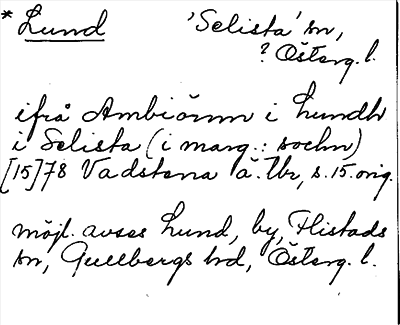 * Lund 'Selista' sn,
? Österg. l.
ifrå Ambiörnn i Lundh
i Selista (i marg.: sochn)
[15]78 Vadstena ä. tbr, s. 15. orig.
möjl. avses Lund, by, Flistads
sn, Gullbergs hd, Österg. l.